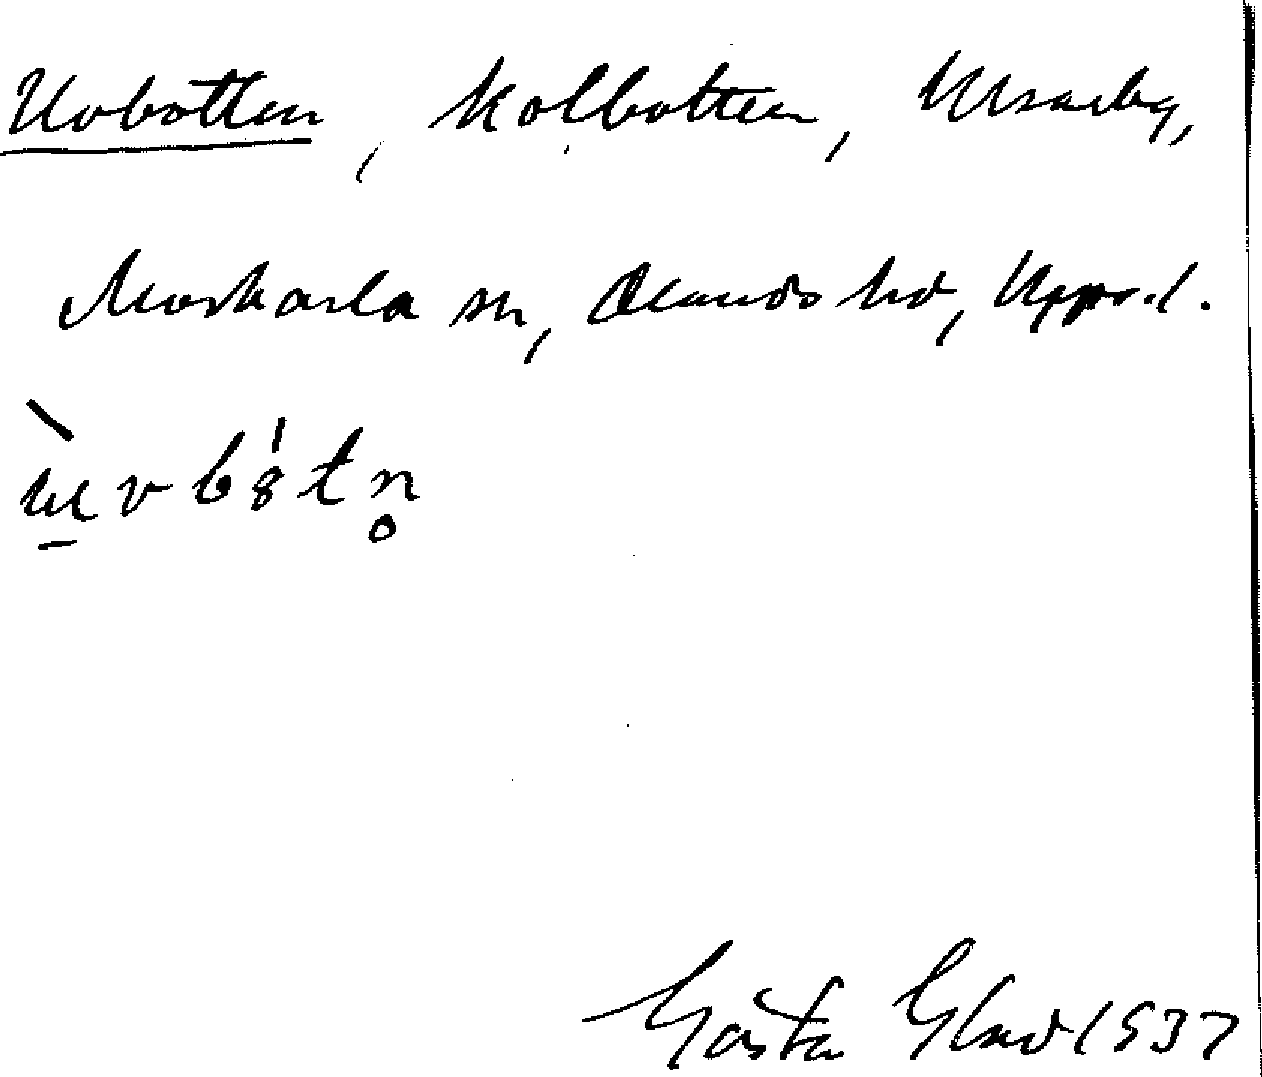 Uvbotten, kolbotten, Ulsarby,
Morkarla sn, Olands hd, Uppsl.
ùvbötn̥
Gösta Glad 1937